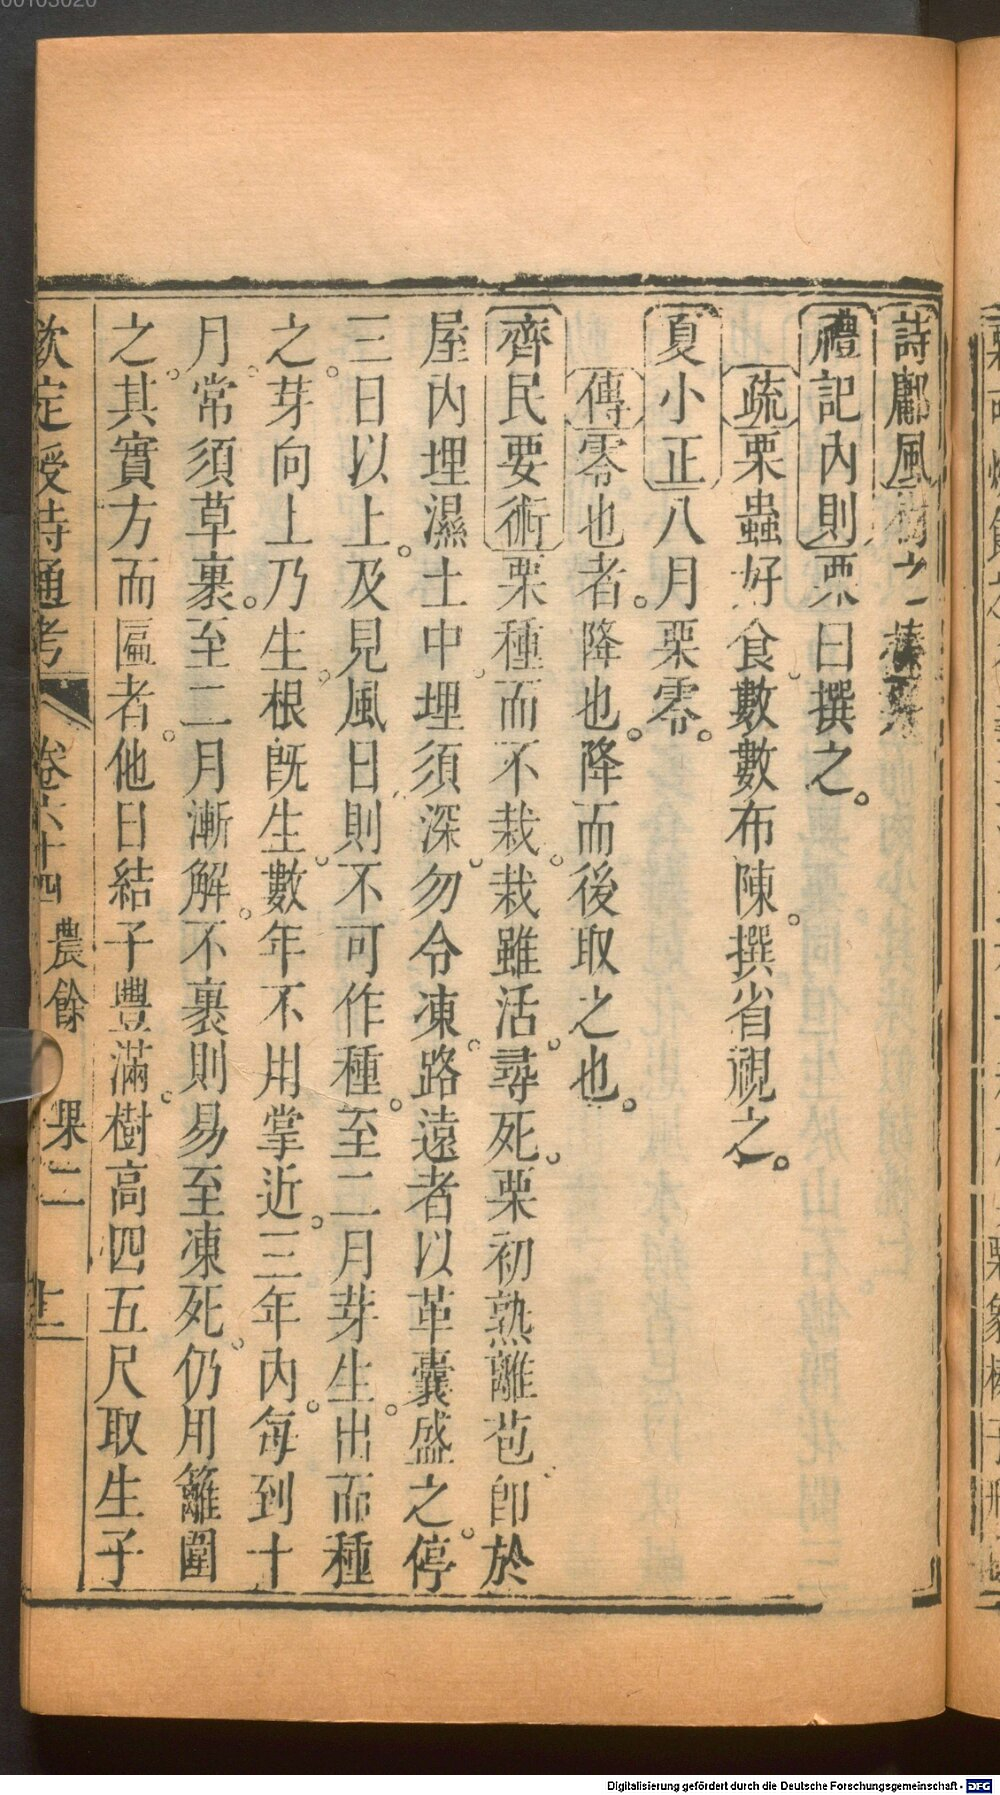 詩鄘風樹之榛栗
禮記內則栗曰撰之。
疏栗蟲好食數數布陳。撰省視之。
夏小正八月栗零。
傳零也者。降也。降而後取之也。
齊民要術栗種而不栽。栽雖活。尋死。栗初熟離苞即於
屋內埋濕土中。埋須深。勿令凍。路遠者以革囊盛之。停
三日以上。及見風日則不可作種。至二月芽生。出而種
之。芽向上乃生根。既生。數年不用掌近。三年內。每到十
月。常須草裹。至二月漸解。不裹則易至凍死。仍用籬圍
之。其實方而匾者。他日結子豐滿。樹高四五尺取生子
欽定授時通考 卷六十四 農餘 果二
Digitalisierung gefördert durch die Deutsche Forschungsgemeinschaft - DFG